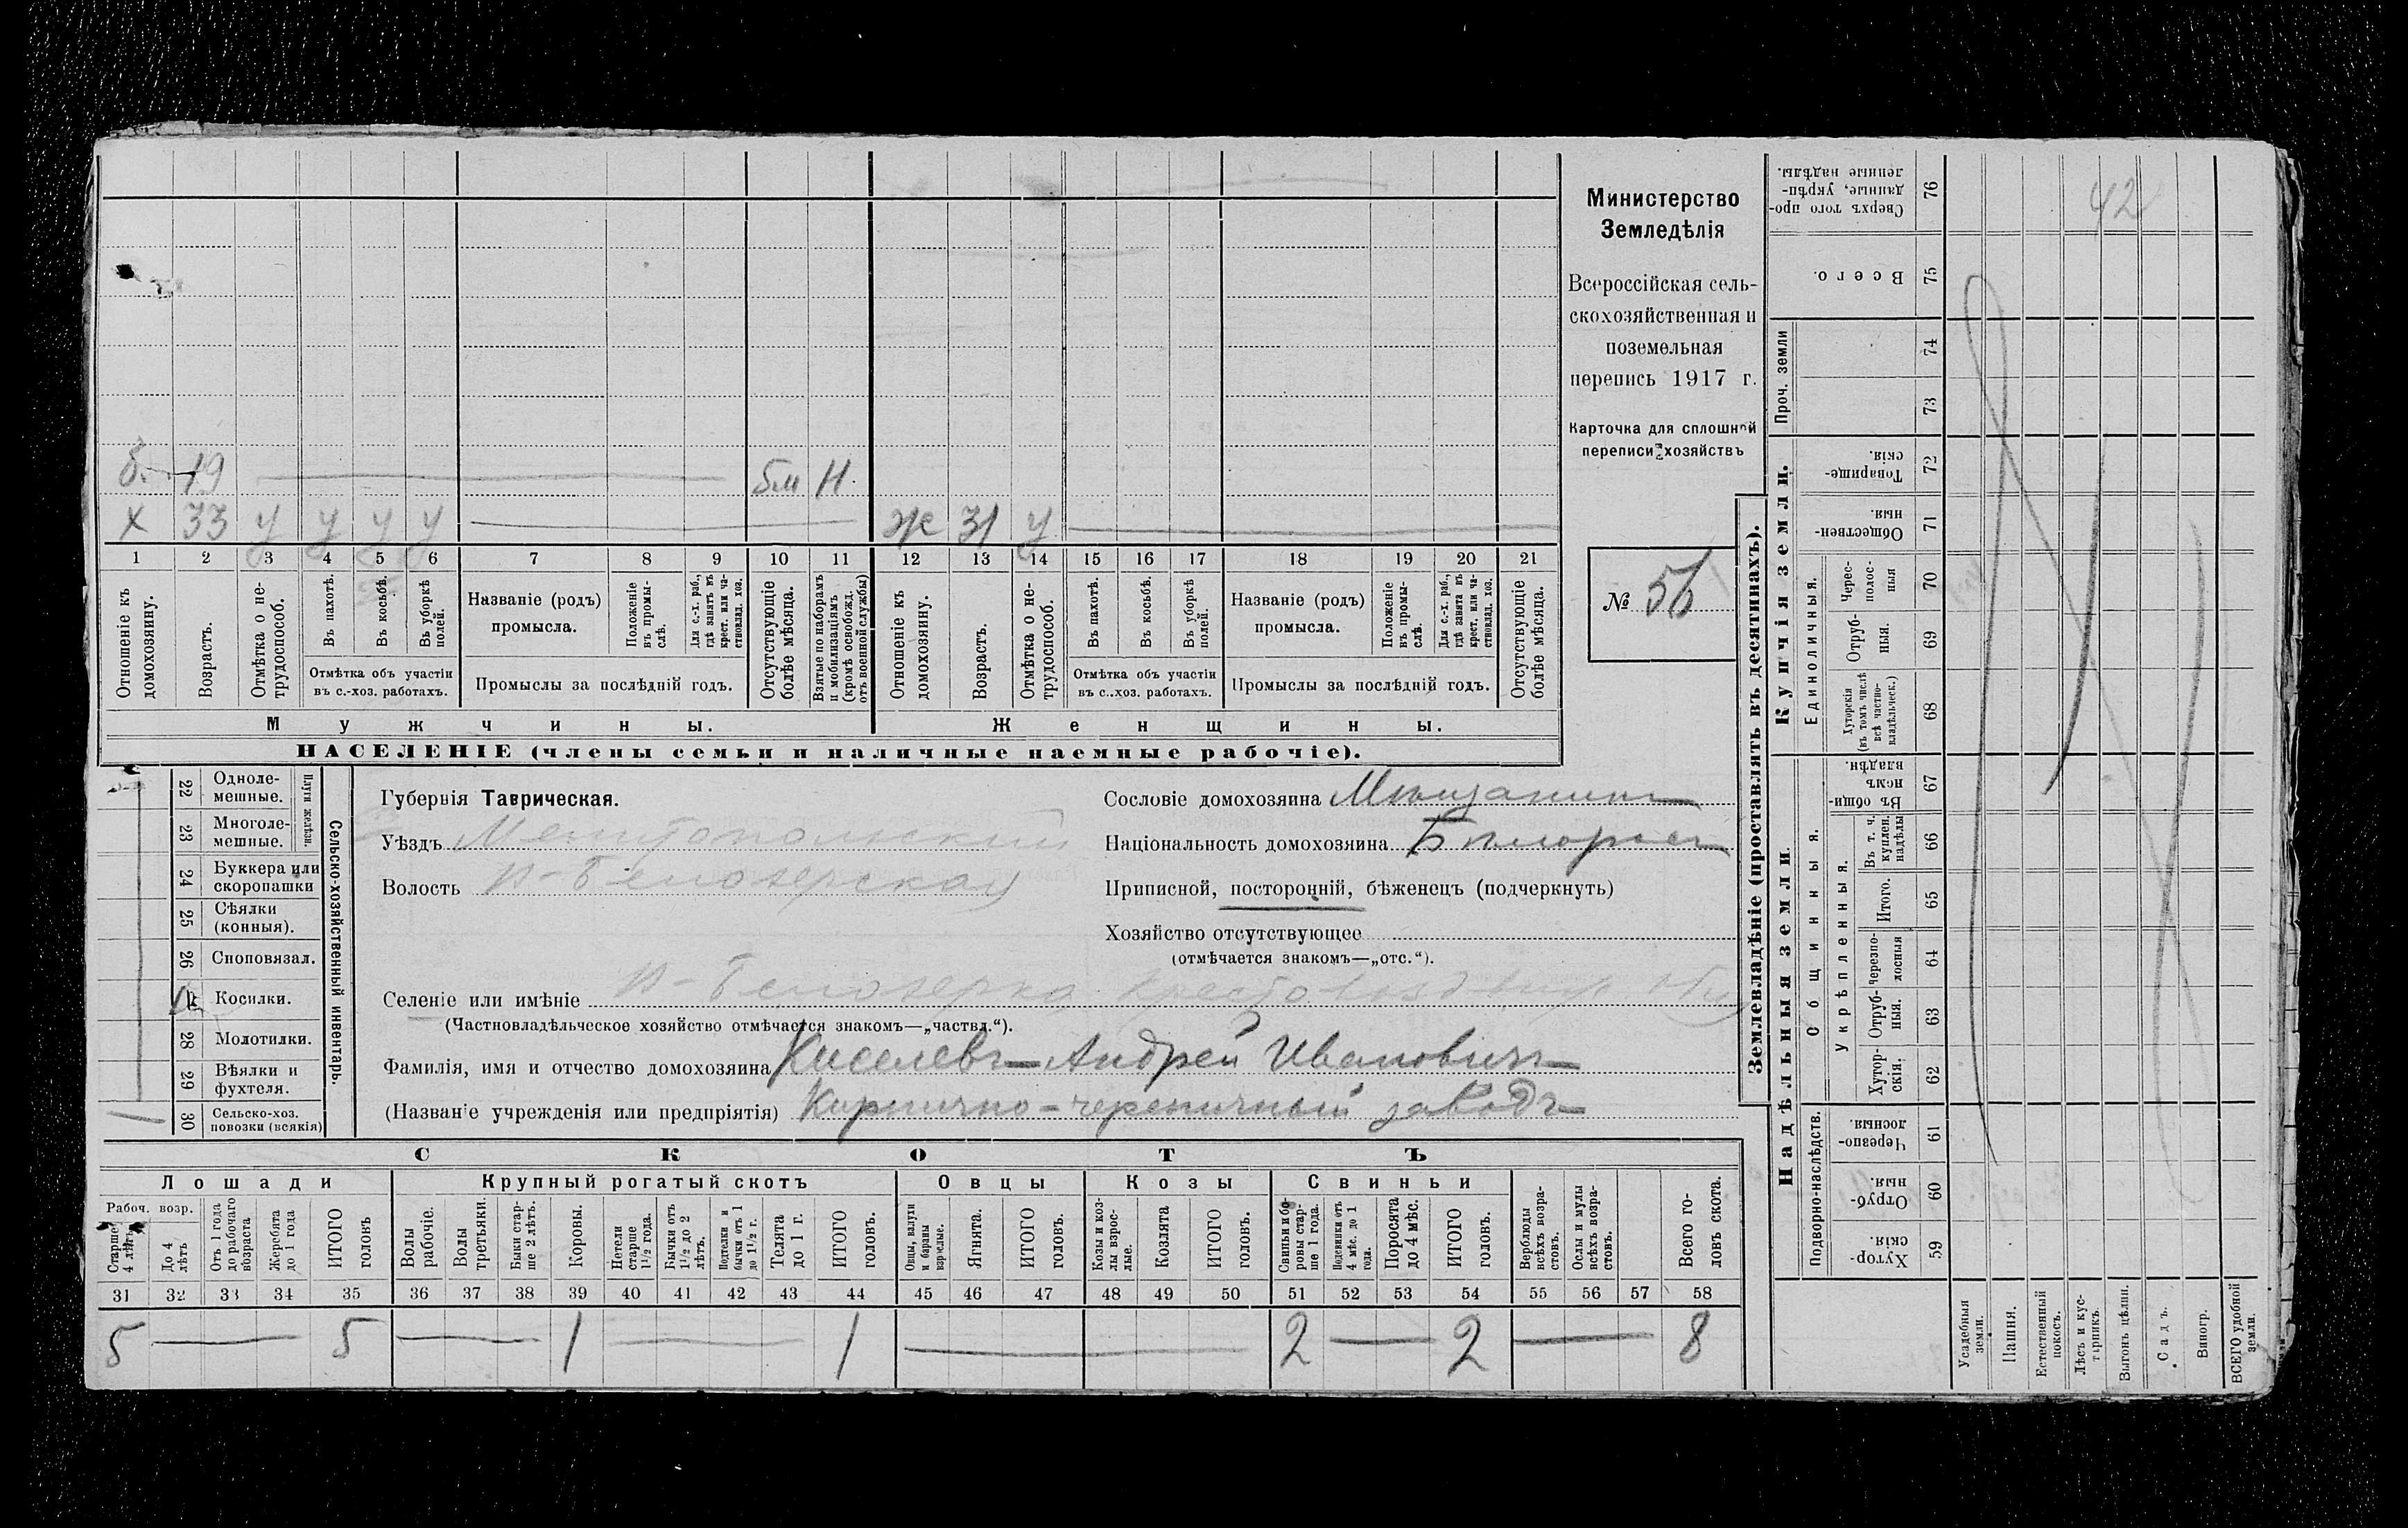 б. 19 бм Н.
х 33 у у у у ж 31 у
1 2 3 4 5 6 7 8 9 10 11 12 13 14 15 16 17 18 19 20 21
Отношеніе къ домохозяину.
Возрастъ.
Отмѣтка о не-
трудоспособ.
Въ пахотѣ.
Въ косьбѣ.
Въ уборкѣ
полей.
Отмѣтка объ участіи
въ с.-хоз. работахъ.
Названіе (родъ)
промысла.
Положеніе
въ промы-
слѣ.
Для с.-х. раб.,
гдѣ занятъ въ
крест. или ча-
стновлад. хоз.
Промыслы за послѣдній годъ.
Отсутствующіе
болѣе мѣсяца.
Взятые по наборамъ
и мобилизаціямъ
(кромѣ освобожд.
отъ военной службы)
Отношеніе къ
домохозяину.
Возрастъ.
Отмѣтка о не-
трудоспособ.
Въ пахотѣ.
Въ косьбѣ.
Въ уборкѣ
полей.
Отмѣтка объ участіи
въ с..хоз. работахъ.
Названіе (родъ)
промысла.
Положеніе
въ промы-
слѣ.
Для с.-х. раб.,
гдѣ занята въ
крест. или ча-
стновлад. хоз.
Промыслы за послѣдній годъ.
Отсутствующіе
болѣе мѣсяца.
Мужчины.
Женщины.
НАСЕЛЕНІЕ (члены семьи и наличные наемные рабочіе).
Министерство
Земледѣлія
Всероссійская сель-
скохозяйственная и
поземельная
перепись 1917 г.
Карточка для сплошной
переписи хозяйствъ
№ 56
22 Одноле-
мешные.
23 Многоле-
мешные.
Плуги желѣзн.
24 Буккера или
скоропашки
25 Сѣялки
(конныя).
26 Сноповязал.
Косилки.
28 Молотилки.
29 Вѣялки и
фухтеля.
30 Сельско-хоз.
повозки (всякія)
Сельско-хозяйственный инвентарь.
Губернія Таврическая.
Уѣздъ Мелитопольский
Волость Н-Белозерская
Сословіе домохозяина Мѣщанинъ
Національность домохозяина Бѣлорусъ
Приписной, посторонній, бѣженецъ (подчеркнуть)
Хозяйство отсутствующее
(отмѣчается знакомъ—„отс.“).
Селеніе или имѣніе Н-Белозерка
(Частновладѣльческое хозяйство отмѣчается знакомъ—„частвл.“).
Фамилія, имя и отчество домохозяина Киселевъ Андрей Ивановичъ
(Названіе учрежденія или предпріятія) Кирпично-черепичный заводъ
СКОТЪ
Лошади Крупный рогатый скотъ Овцы Козы Свиньи
Рабоч. возр.
Старше
4 лѣтъ
До 4
лѣтъ
Отъ 1 года
до рабочаго
возраста
Жеребята
до 1 года
ИТОГО
головъ
Волы
рабочіе.
Волы
третьяки.
Быки стар-
ше 2 лѣтъ.
Коровы.
Нетели
старше
1½ года.
Бычки отъ
1½ до 2
лѣтъ.
Подтелки и
бычки отъ 1
до 1½ г.
Телята
до 1 г.
ИТОГО
головъ.
Овцы, валухи
и бараны
взрослые.
Ягнята.
ИТОГО
головъ.
Козы и коз-
лы взрос-
лые.
Козлята
ИТОГО
головъ.
Свиньи и бо-
ровы стар-
ше 1 года.
Подсвинки отъ
4 мѣс. до 1
года.
Поросята
до 4 мѣс.
ИТОГО
головъ.
Верблюды
всѣхъ возра-
стовъ.
Ослы и мулы
всѣхъ возра-
стовъ.
Всего го-
ловъ скота.
31 32 33 34 35 36 37 38 39 40 41 42 43 44 45 46 47 48 49 50 51 52 53 54 55 56 57 58
5 5 1 1 2 2 8
Землевладѣніе (проставлять въ десятинахъ).
Надѣльныя земли.
Купчія земли.
Проч. земли
Подворно-наслѣдств.
Общинныя.
Укрѣпленныя.
Единоличныя.
Хутор-
скія. 59
Отруб-
ныя. 60
Черезпо-
лосныя. 61
Хутор-
скія. 62
Отруб-
ныя. 63
Черезпо-
лосныя 64
Итого. 65
Въ т. ч.
куплен.
надѣлы 66
Въ общи-
номъ
владѣн. 67
Хуторскія
(въ томъ числѣ
всѣ частно-
владѣльческ.) 68
Отруб-
ныя. 69
Черес-
полос-
ныя 70
Обществен-
ныя. 71
Товарище-
скія. 72
73
74
Всего. 75
Сверхъ того про-
данные, укрѣп-
ленные надѣлы. 76
42
Усадебныя
земли.
Пашня.
Естественный
покосъ.
Лѣсъ и кус-
тарникъ.
Выгонъ цѣлин.
Садъ.
Виногр.
ВСЕГО удобной
земли.